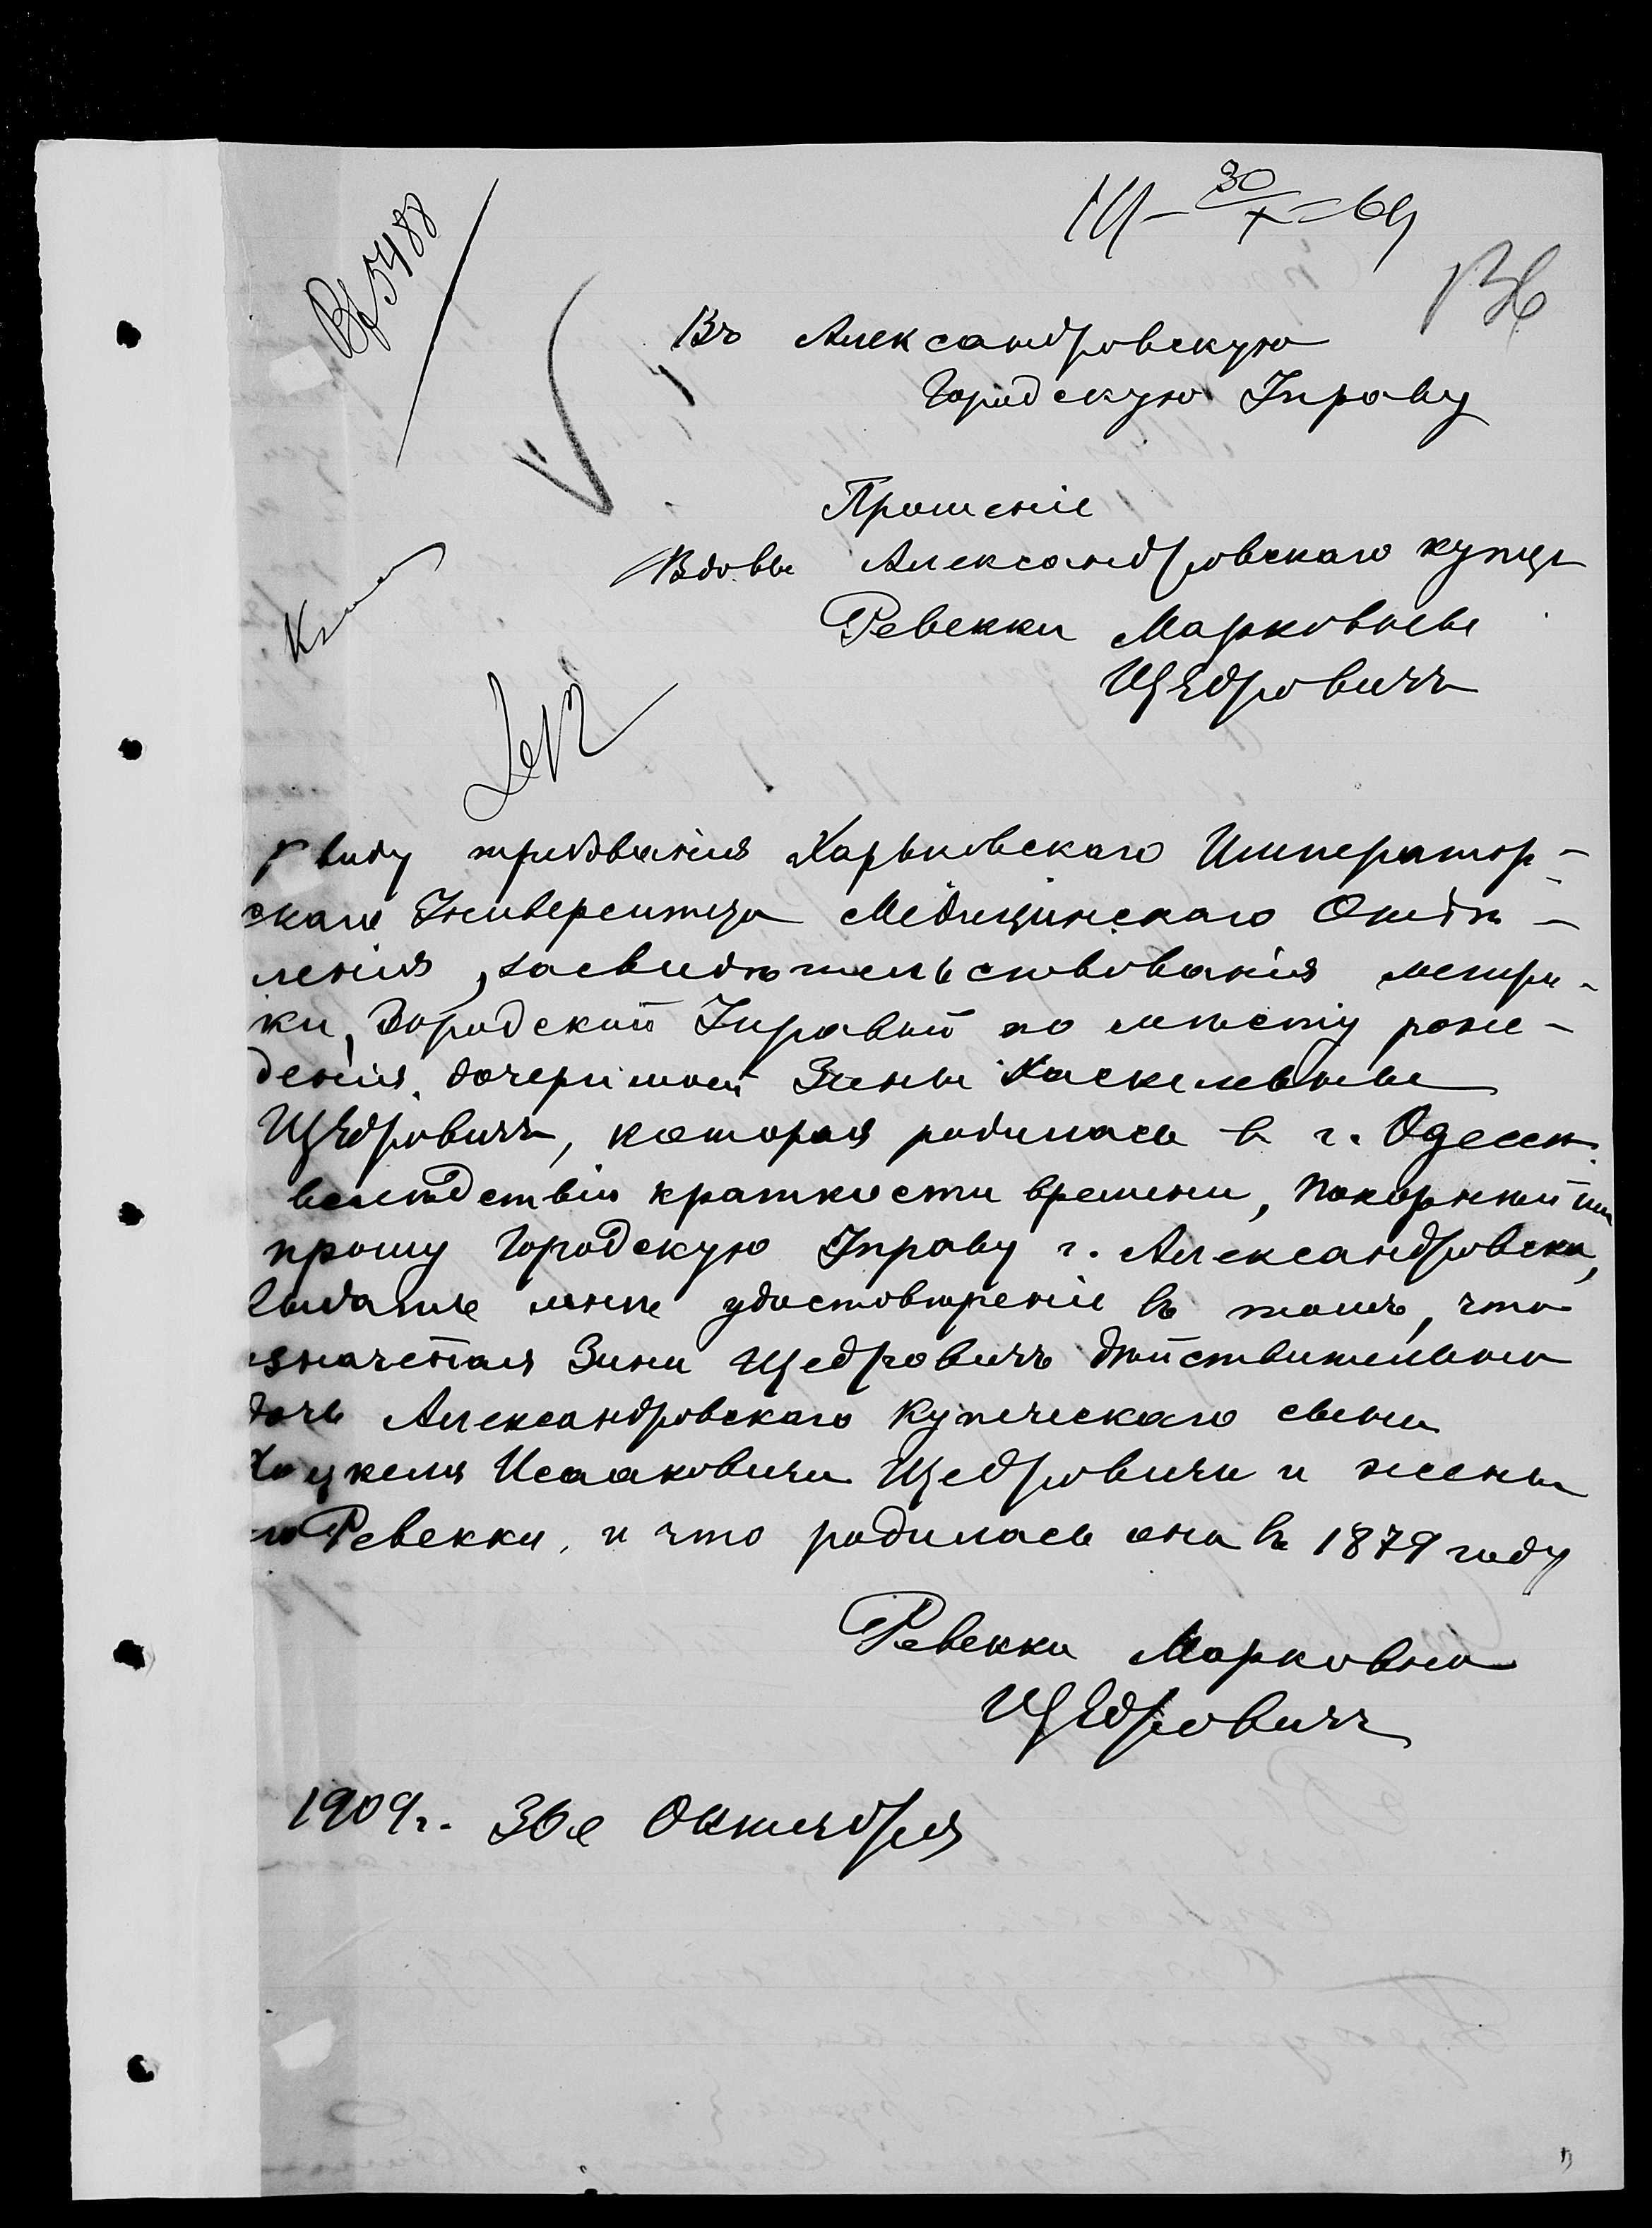 30
X
136
Вх 5488
Въ Александровскую
Городскую Управу
Прошеніе
Вдовы Александровскаго купца
Ревекки Марковны
Щедровичъ
виду требованія Харьковскаго Император-
скаго Университета Медицинскаго Отдѣ-
ленія, засвидѣтельствованія метри-
ки, Городской Управой по мѣсту рож-
денія, дочери моей Зины Хаскелевны
Щедровичъ, которая родилась в г. Одессѣ
вслѣдствіи краткости времени, покорнѣйше
прошу Городскую Управу г. Александровска,
выдать мнѣ удостовѣреніе въ томъ, что
значеная Зина Щедровичъ дѣйствительно
дочь Александровскаго Купеческаго сына
Хацкеля Исааковича Щедровича и жены
го Ревекки, и что родилась она въ 1879 году
Ревекка Марковна
Щедровичъ
1909 г. 30е Октября